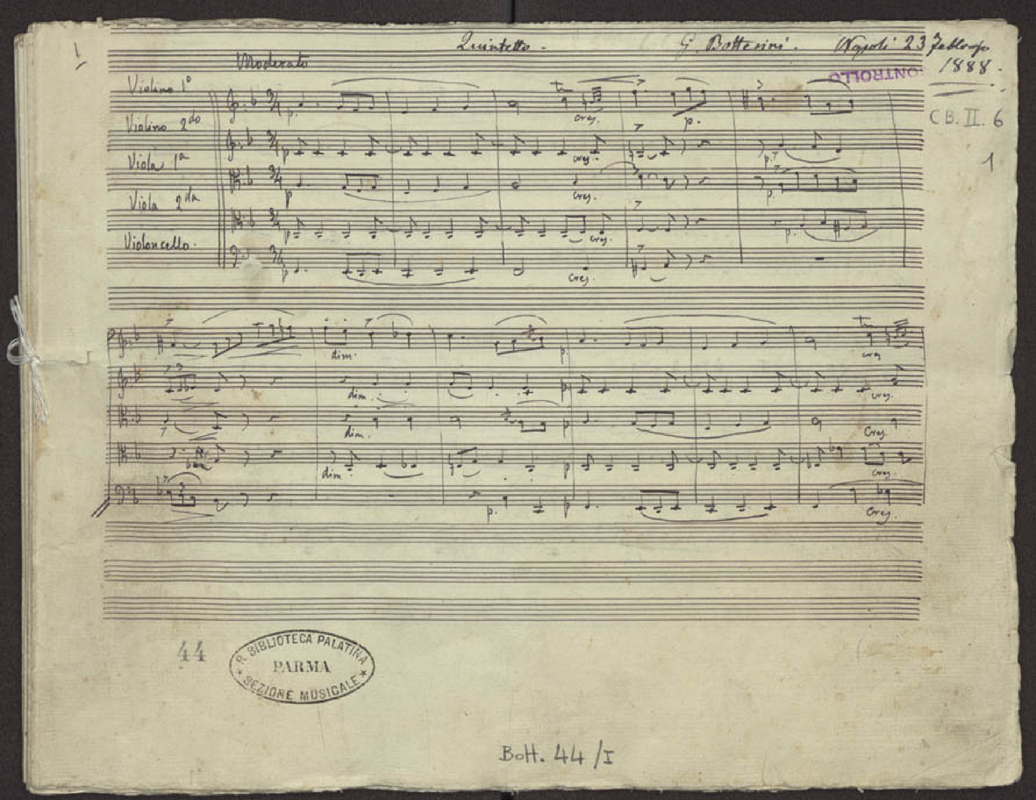 1
Quintetto. G. Bottesini. Napoli 23 Febbraio
1888.
Moderato
CONTROLLO
Violino 1º
cres. p.
C B. II. 6
Violino 2do
p cres. p.
1
Viola 1a
p cres. p.
Viola 2da
p cres. p.
Violoncello.
p cres.
dim. p cres
dim. p cres.
dim. p Cres.
dim. p cres.
p. p Cres.
44
R. BIBLIOTECA PALATINA
PARMA
SEZIONE MUSICALE
Bott. 44/I